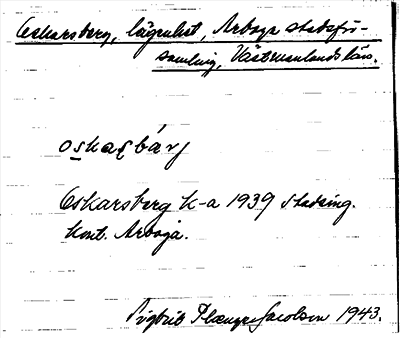 Oskarsberg, lägenhet, Arboga stadsför-
samling, Västmanlands län.
oskarbärj
Oskarsberg k-a 1939 Stadsing.
kont. Arboga.
Jacobson 1943.